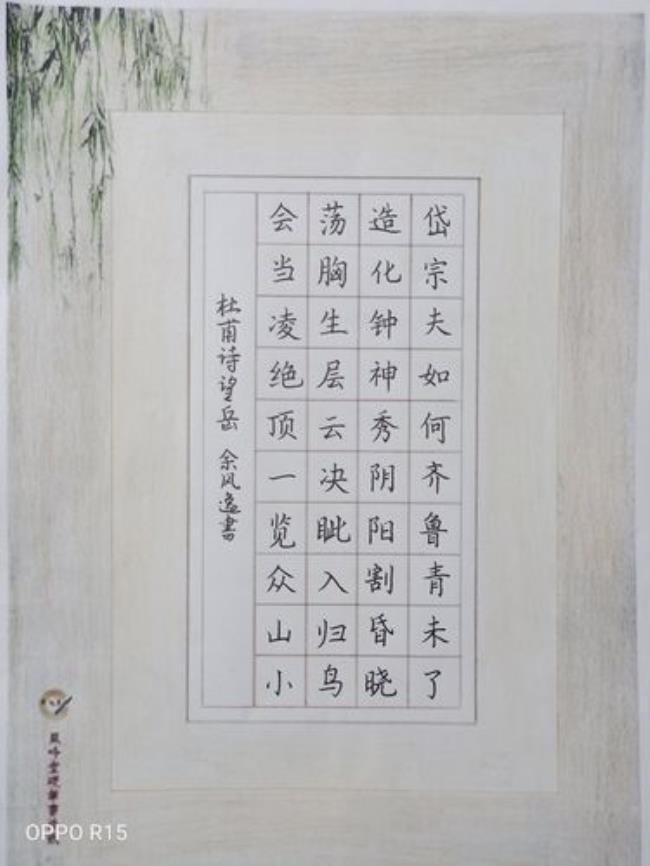 岱宗夫如何齐鲁青未了
造化钟神秀阴阳割昏晓
荡胸生层云决眦入归鸟
会当凌绝顶一览众山小
杜甫诗望岳 余风逸書
OPPO R15